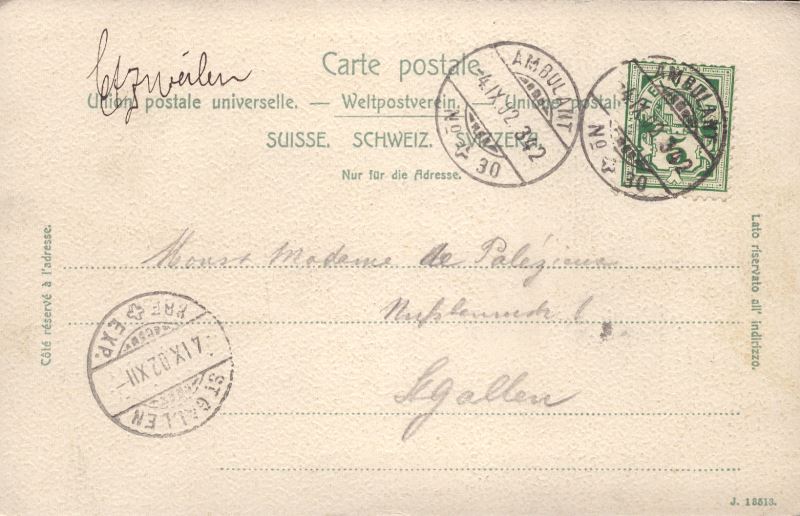 Etzweilen
Carte postale
AMBULANT
4.IX.02 342
No 30
AMBULANT
4.IX.02 342
No 30
5
Union postale universelle. — Weltpostverein. — Unione postale
SUISSE. SCHWEIZ. SVIZZERA.
Nur für die Adresse.
Côté réservé à l'adresse.
Lato riservato all' indirizzo.
Madame de Palézieux
St Gallen
BRF EXP.
4.IX.02.XII-
ST GALLEN
J. 13513.